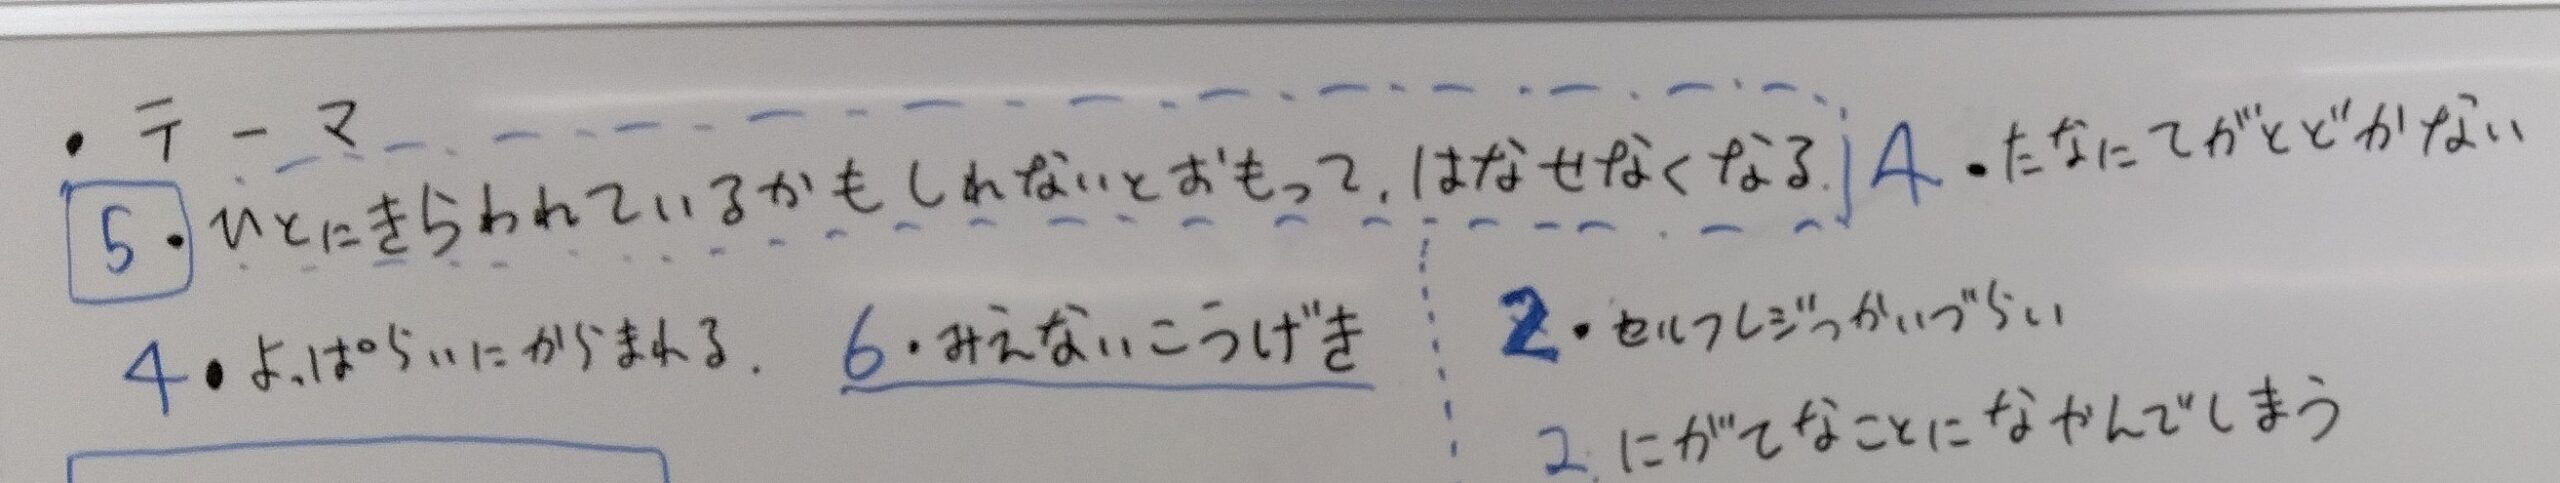 ・テーマ
5・ひとにきらわれているかもしれないとおもって、はなせなくなる.
4・たなにてがとどかない
4・よっぱらいにからまれる.
6・みえないこうげき
2・セルフレジつかいづらい
2.にがてなことになやんでしまう